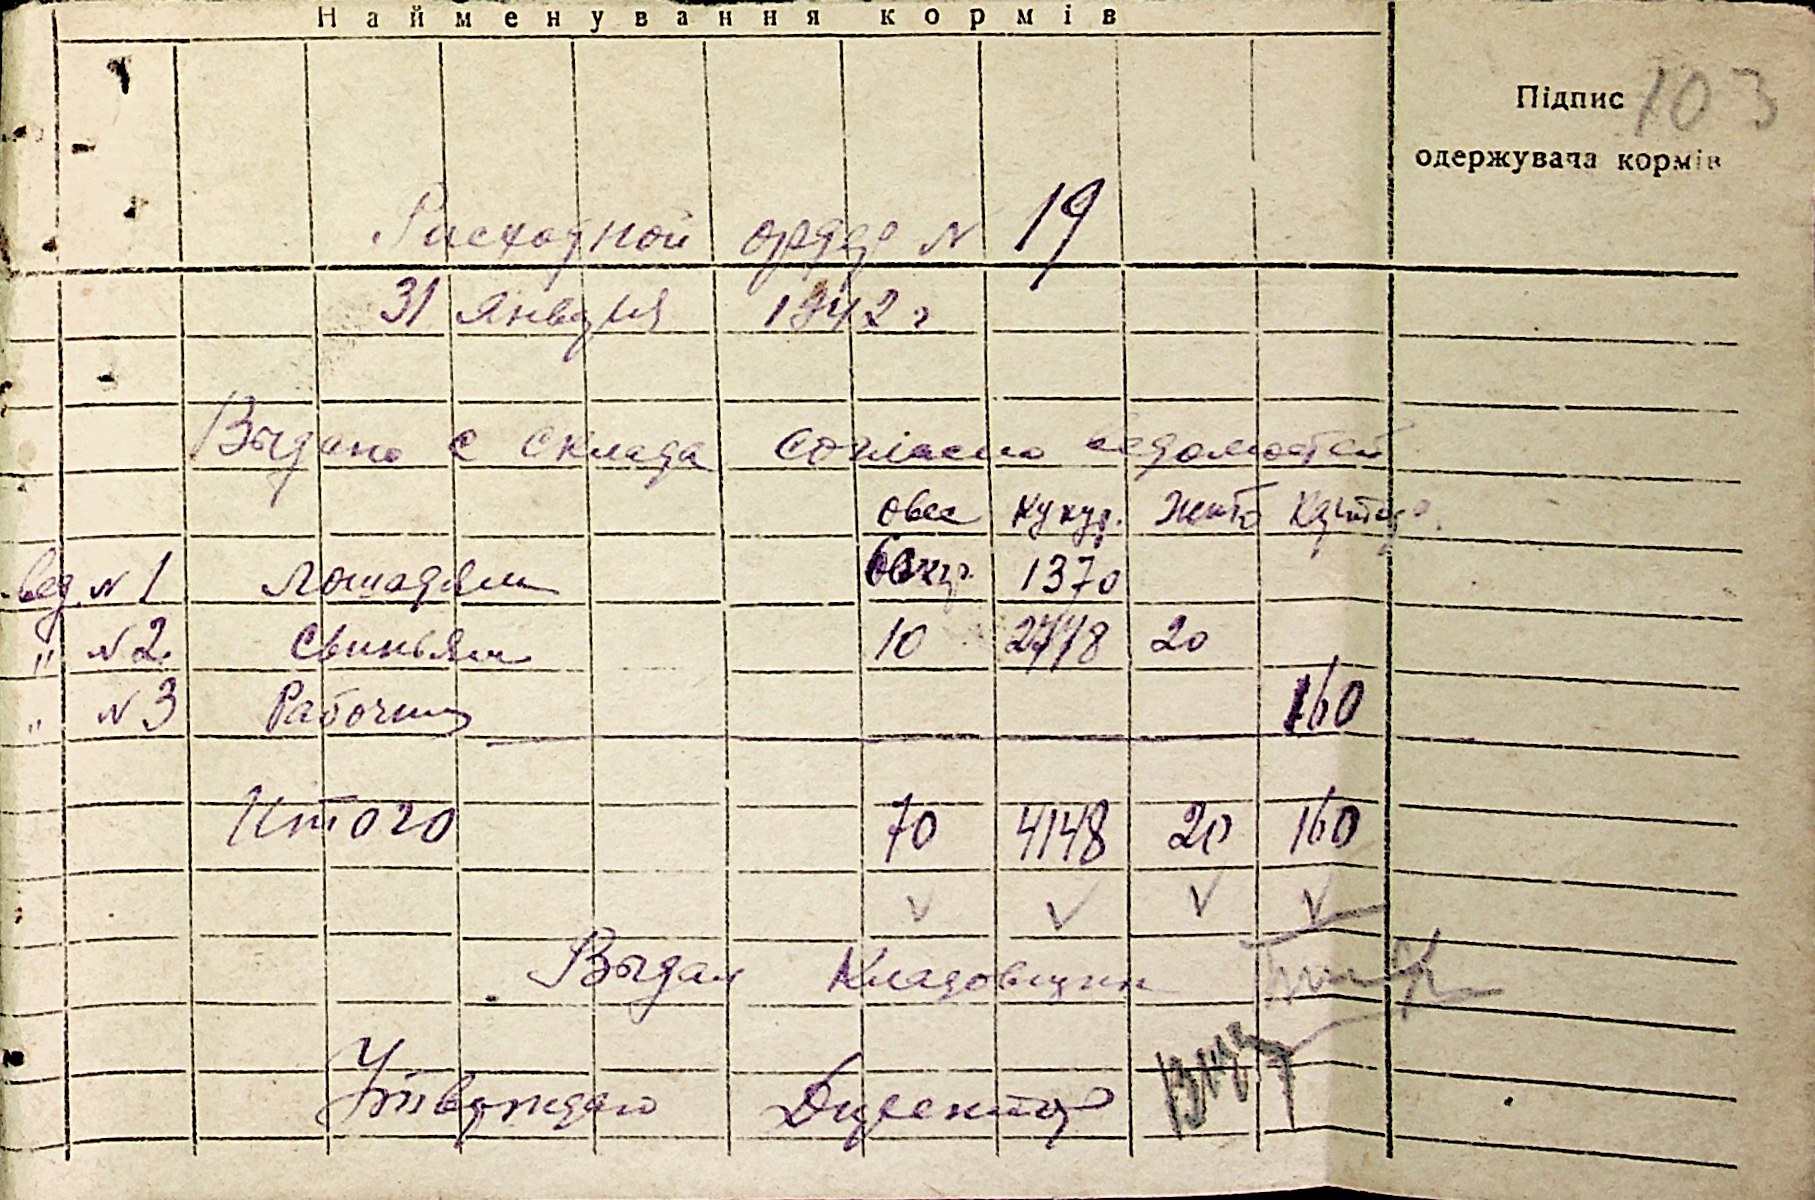 Найменування кормів
103
Підпис
одержувача кормів
Расходной ордер № 19
31 января 1942 г
Выдано с склада согласно ведомостей
овес кукур. жито картоф.
вед. № 1 лошадям 60 кгр. 1370
" № 2. Свиньям 10 2778 20
" № 3 Рабочим 160
Итого 70 4148 20 160
Выдал Кладовщик
Утверждаю Директор